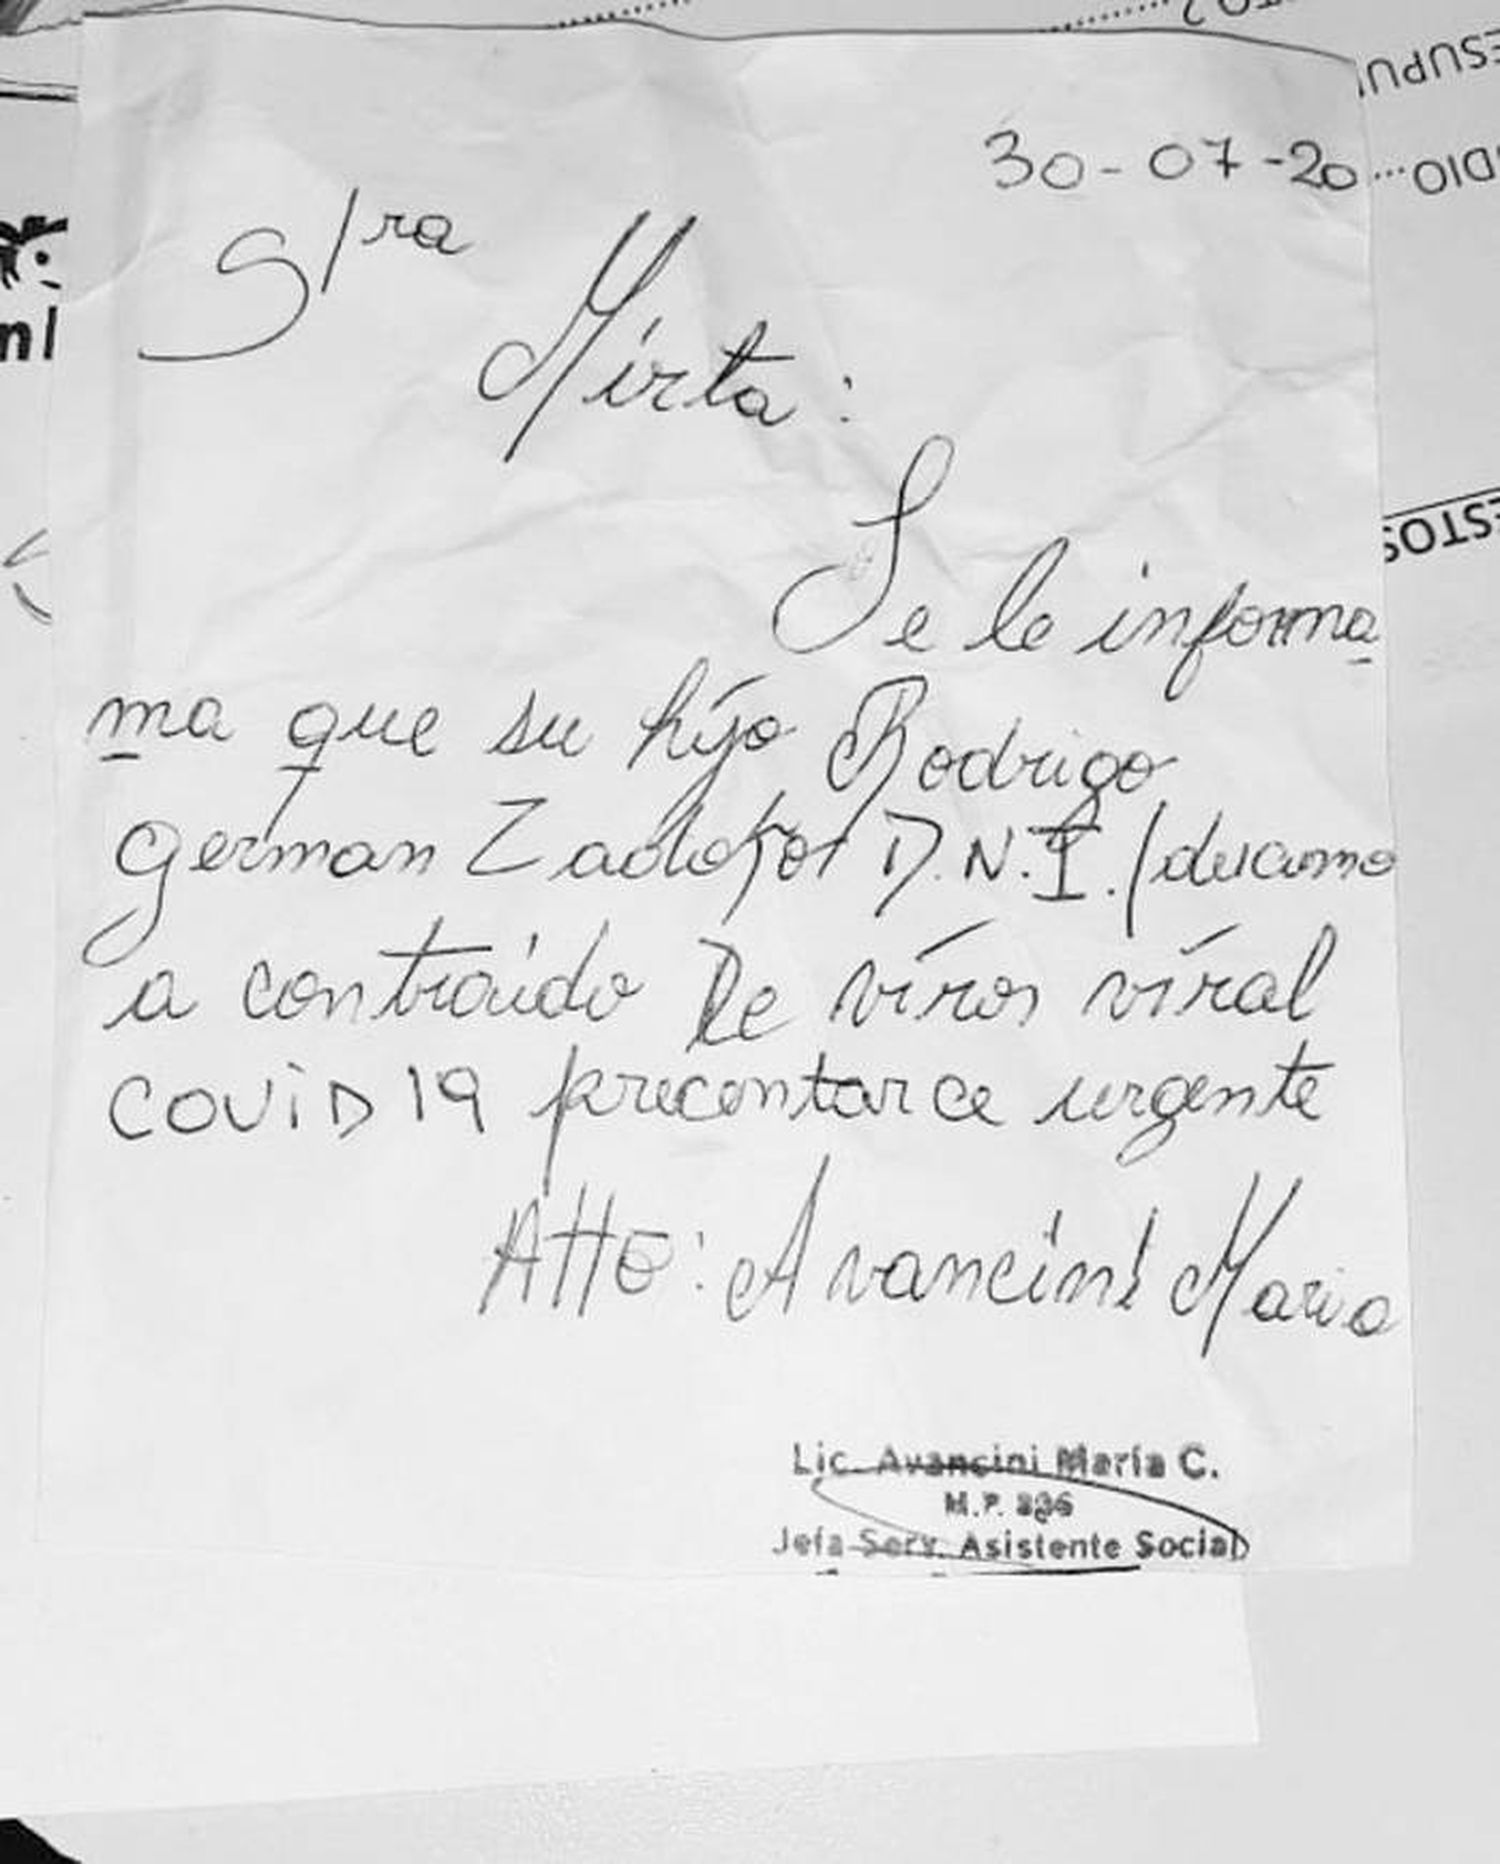 30-07-20
S/ra
Mirta:
Se le informa
ma que su hijo Rodrigo
german D.N.I. /
a contraído De viros viral
COViD 19 precentarce urgente
Atte: Avancini Maria
Lic. Avancini María C.
M.P.
Jefa Serv. Asistente Social